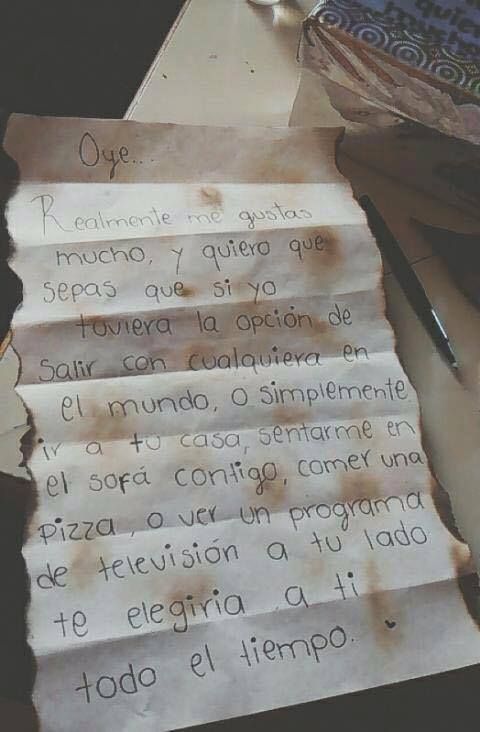 Oye...
Realmente me gustas
mucho, y quiero que
sepas que si yo
tuviera la opción de
salir con cualquiera en
el mundo, o simplemente
ir a tu casa, sentarme en
el sofá contigo, comer una
pizza, o ver un programa
de televisión a tu lado
te elegiria a ti
todo el tiempo.